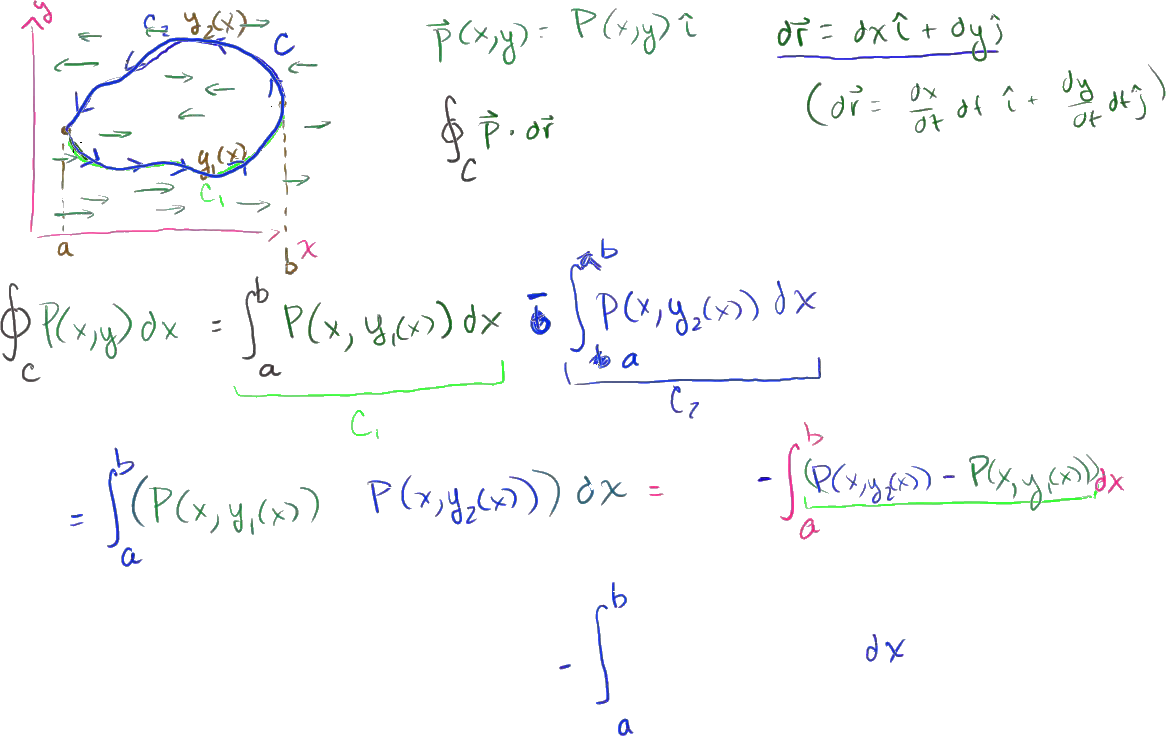 y
C₂ y₂(x)
C
y₁(x)
C₁
a b x
P⃗(x,y) = P(x,y) î
dr⃗ = dx î + dy ĵ
(dr⃗ = dx/dt dt î + dy/dt dt ĵ)
∮_C P⃗ · dr⃗
∮_C P(x,y) dx = ∫_a^b P(x, y₁(x)) dx - ∫_a^b P(x, y₂(x)) dx
C₁ C₂
= ∫_a^b (P(x, y₁(x)) P(x, y₂(x))) dx = - ∫_a^b (P(x, y₂(x)) - P(x, y₁(x))) dx
- ∫_a^b dx